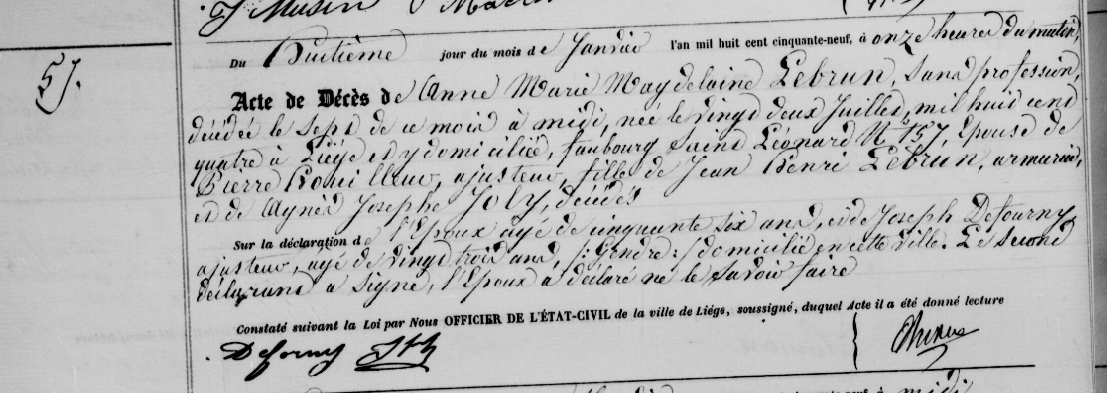 J Musin
57.
Du Huitième jour du mois de Janvier l'an mil huit cent cinquante-neuf, à onze heures du matin,
Acte de Décès de Anne Marie Magdelaine Lebrun, sans profession,
décédée le sept de ce mois à midi, née le vingt deux Juillet mil huit cent
quatre à Liége et y domiciliée, faubourg Saint Léonard N. 157, Epouse de
Pierre ajusteur, fille de Jean Henri Lebrun, armurier,
et de Agnès Josephe Joly, décédés
Sur la déclaration de l'Epoux âgé de cinquante six ans, et de Joseph Defourny,
ajusteur, âgé de vingt trois ans, /: Gendre :/ domicilié en cette ville. Le second
déclarant a signé, l'Epoux a déclaré ne le savoir faire
Constaté suivant la Loi par Nous OFFICIER DE L'ÉTAT-CIVIL de la ville de Liége, soussigné, duquel Acte il a été donné lecture
Deforny Jph
à midi